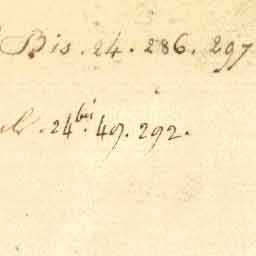 Bis. 24. 286. 297
24bis. 49. 292.